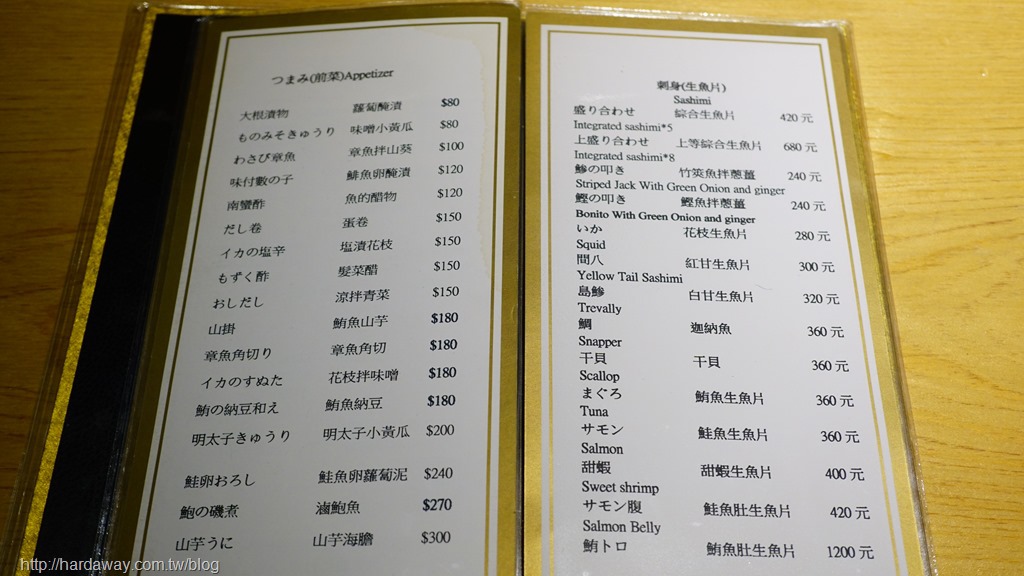 つまみ(前菜)Appetizer
大根漬物 蘿蔔醃漬 $80
ものみそきゅうり 味噌小黃瓜 $80
わさび章魚 章魚拌山葵 $100
味付數の子 鯡魚卵醃漬 $120
南蠻酢 魚的醋物 $120
だし卷 蛋卷 $150
イカの塩辛 塩漬花枝 $150
もずく酢 髮菜醋 $150
おしだし 涼拌青菜 $150
山掛 鮪魚山芋 $180
章魚角切り 章魚角切 $180
イカのすぬた 花枝拌味噌 $180
鮪の納豆和え 鮪魚納豆 $180
明太子きゅうり 明太子小黃瓜 $200
鮭卵おろし 鮭魚卵蘿蔔泥 $240
鮑の磯煮 滷鮑魚 $270
山芋うに 山芋海膽 $300
刺身(生魚片)
Sashimi
盛り合わせ 綜合生魚片 420 元
Integrated sashimi*5
上盛り合わせ 上等綜合生魚片 680 元
Integrated sashimi*8
鰺の叩き 竹筴魚拌蔥薑 240 元
Striped Jack With Green Onion and ginger
鰹の叩き 鰹魚拌蔥薑 240 元
Bonito With Green Onion and ginger
いか 花枝生魚片 280 元
Squid
間八 紅甘生魚片 300 元
Yellow Tail Sashimi
島鰺 白甘生魚片 320 元
Trevally
鯛 迦納魚 360 元
Snapper
干貝 干貝 360 元
Scallop
まぐろ 鮪魚生魚片 360 元
Tuna
サモン 鮭魚生魚片 360 元
Salmon
甜蝦 甜蝦生魚片 400 元
Sweet shrimp
サモン腹 鮭魚肚生魚片 420 元
Salmon Belly
鮪トロ 鮪魚肚生魚片 1200 元
http://hardaway.com.tw/blog